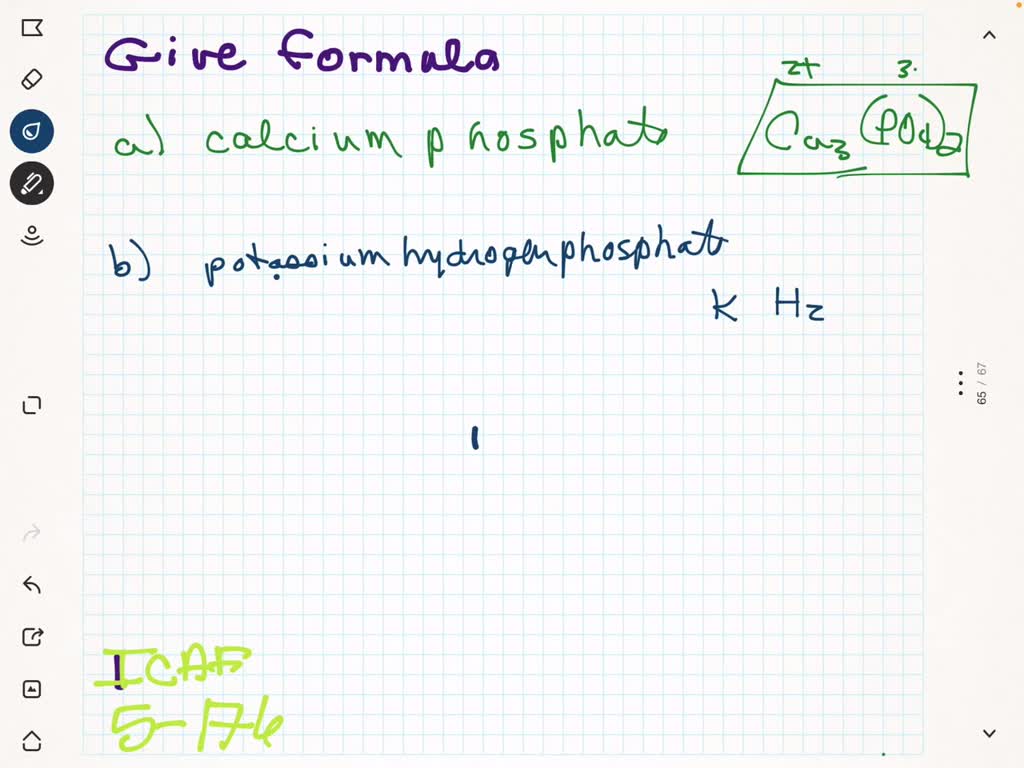 Give formula
2+ 3-
a) calcium phosphate Ca3(PO4)2
b) potassium hydrogen phosphate
K H2
65 / 67
ICAF
5-176